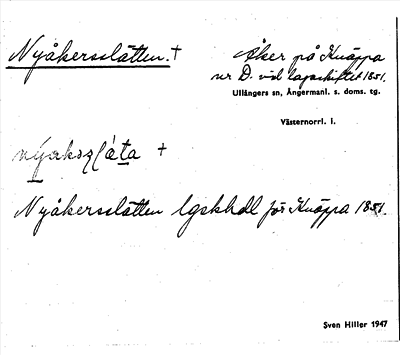 Nyåkersslätten. +
Åker på Knäppa
nr D. vid lagaskiftet 1851.
Ullångers sn, Ångermanl. s. doms. tg.
Västernorrl. l.
+
Nyåkersslätten lgskhdl för Knäppa 1851.
Sven Hiller 1947